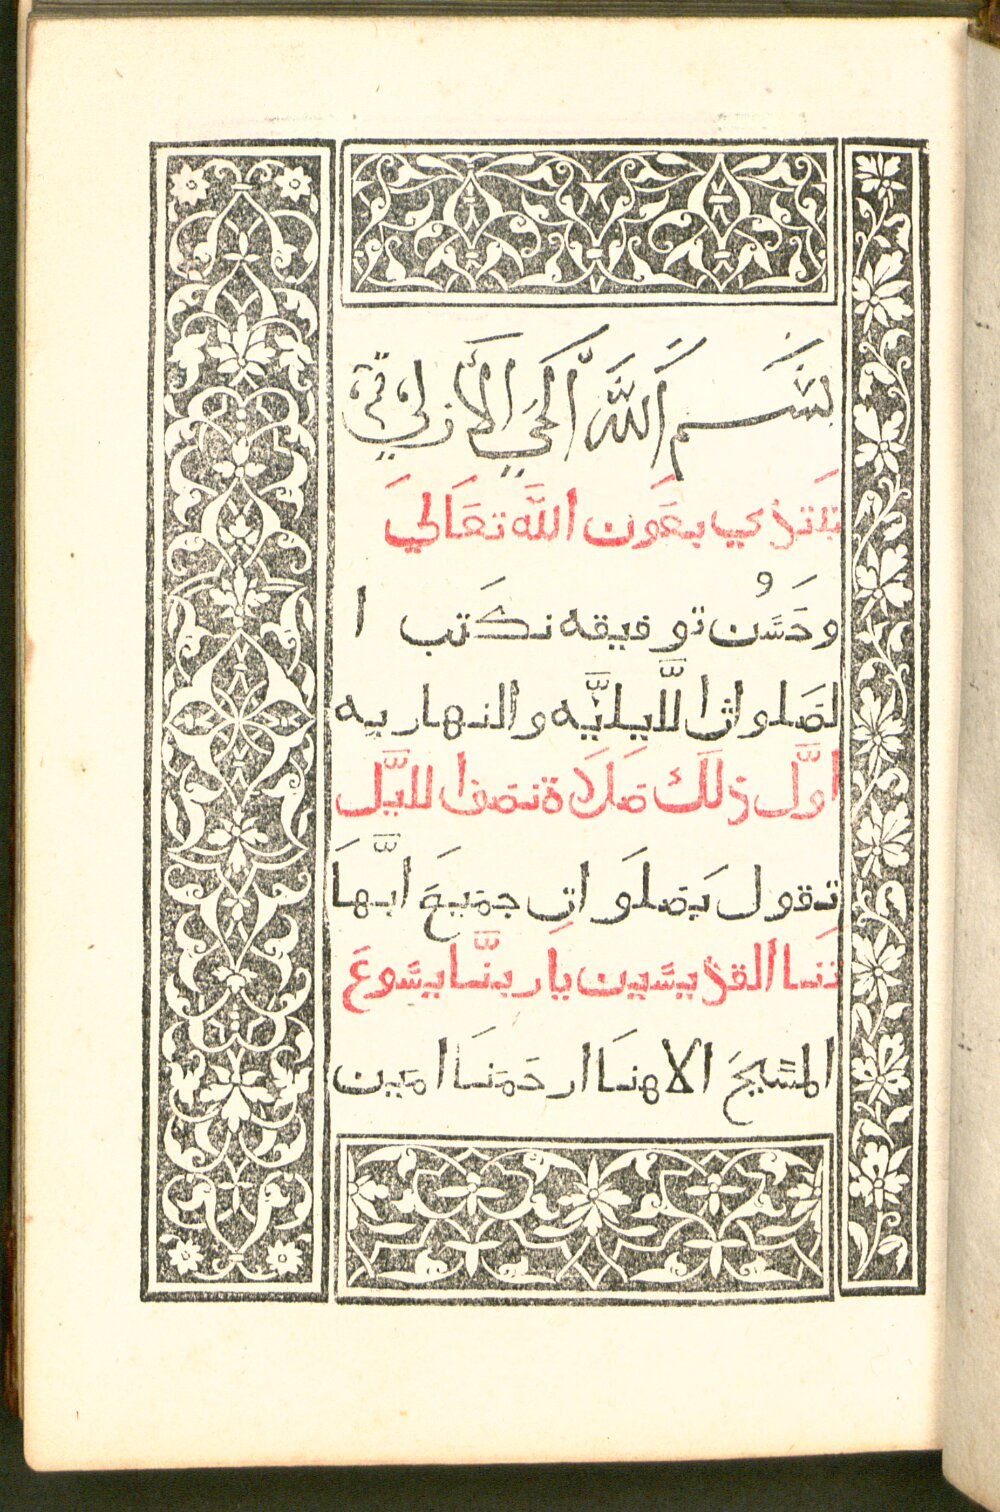 بسم الله الحي الازلي
نبتدي بعون الله تعالي
وحسن توفيقه نكتب ا
لصلوات الليليه والنهاريه
اول ذلك صلاة نصف الليل
تقول بصلوات جميع ابهـا
تنا القديسين يا ربنا يسوع
المسيح الاهنا ارحمنا امين